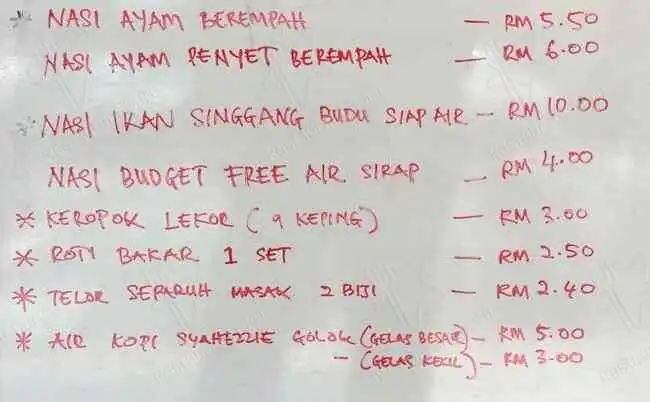 * NASI AYAM BEREMPAH — RM 5.50
NASI AYAM PENYET BEREMPAH — RM 6.00
* NASI IKAN SINGGANG BUDU SIAP AIR — RM 10.00
NASI BUDGET FREE AIR SIRAP — RM 4.00
* KEROPOK LEKOR (9 KEPING) — RM 3.00
* ROTI BAKAR 1 SET — RM 2.50
* TELOR SEPARUH MASAK 2 BIJI — RM 2.40
* AIR KOPI SYAHEZZIE GOLOK (GELAS BESAR) — RM 5.00
— (GELAS KECIL) — RM 3.00